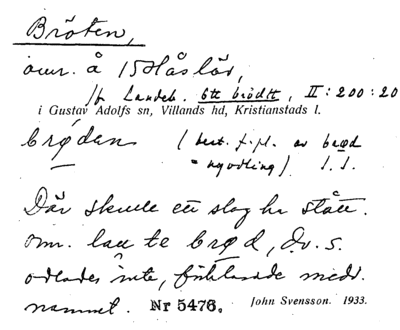 Bröten,
omr. å 15 Håslöv,
/jf Landeb. 6tt brödtt, II:200:20
i Gustav Adolfs sn, Villands hd, Kristianstads l.
brødan (best. f. pl. av brød
= nyodling) J. S.
Där skulle ett slag ha stått.
omr. lau te brød, d.v.s.
odlades inte, förklarade medd.
namnet. Nr 5476. John Svensson. 1933.